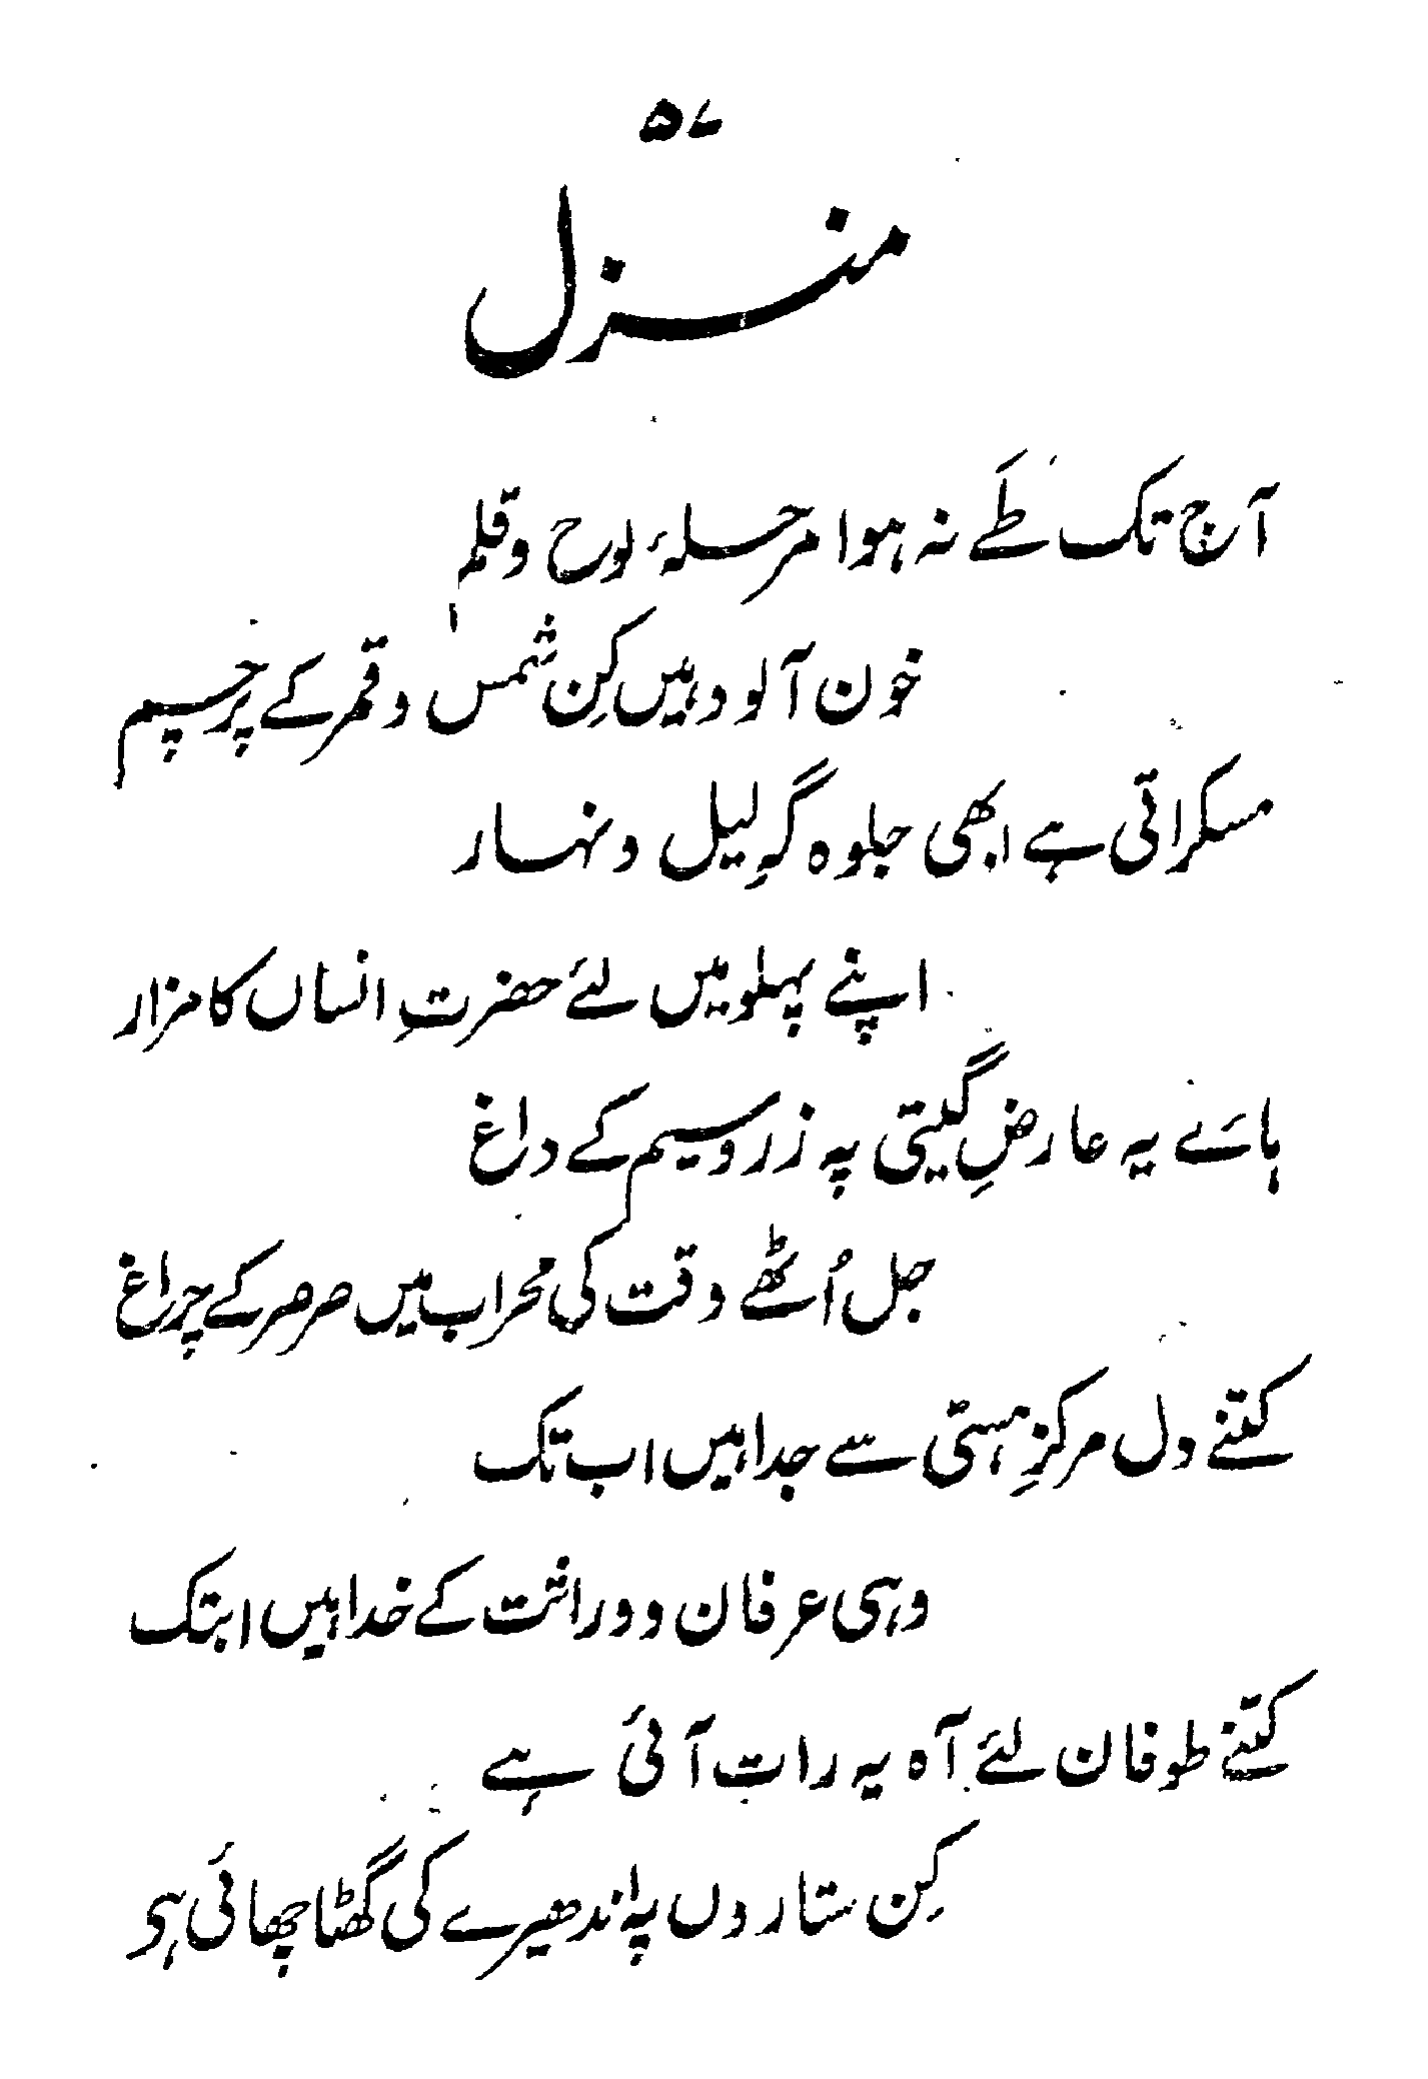 ۵۷
منزل
آج تک طے نہ ہوا مرحلۂ لوح و قلم
خون آلود ہیں کِن شمس و قمر کے پرچم
مسکراتی ہے ابھی جلوہ گہِ لیل و نہار
اپنے پہلو میں لئے حضرتِ انساں کا مزار
ہائے یہ عارضِ گیتی پہ زر و سیم کے داغ
جل اُٹھے وقت کی محراب میں صرصر کے چراغ
کتنے دل مرکزِ ہستی سے جدا ہیں اب تک
وہی عرفان و وراثت کے خدا ہیں ابتک
کتنے طوفان لئے آہ یہ رات آئی ہے
کِن ستاروں پہ اندھیرے کی گھٹا چھائی ہی